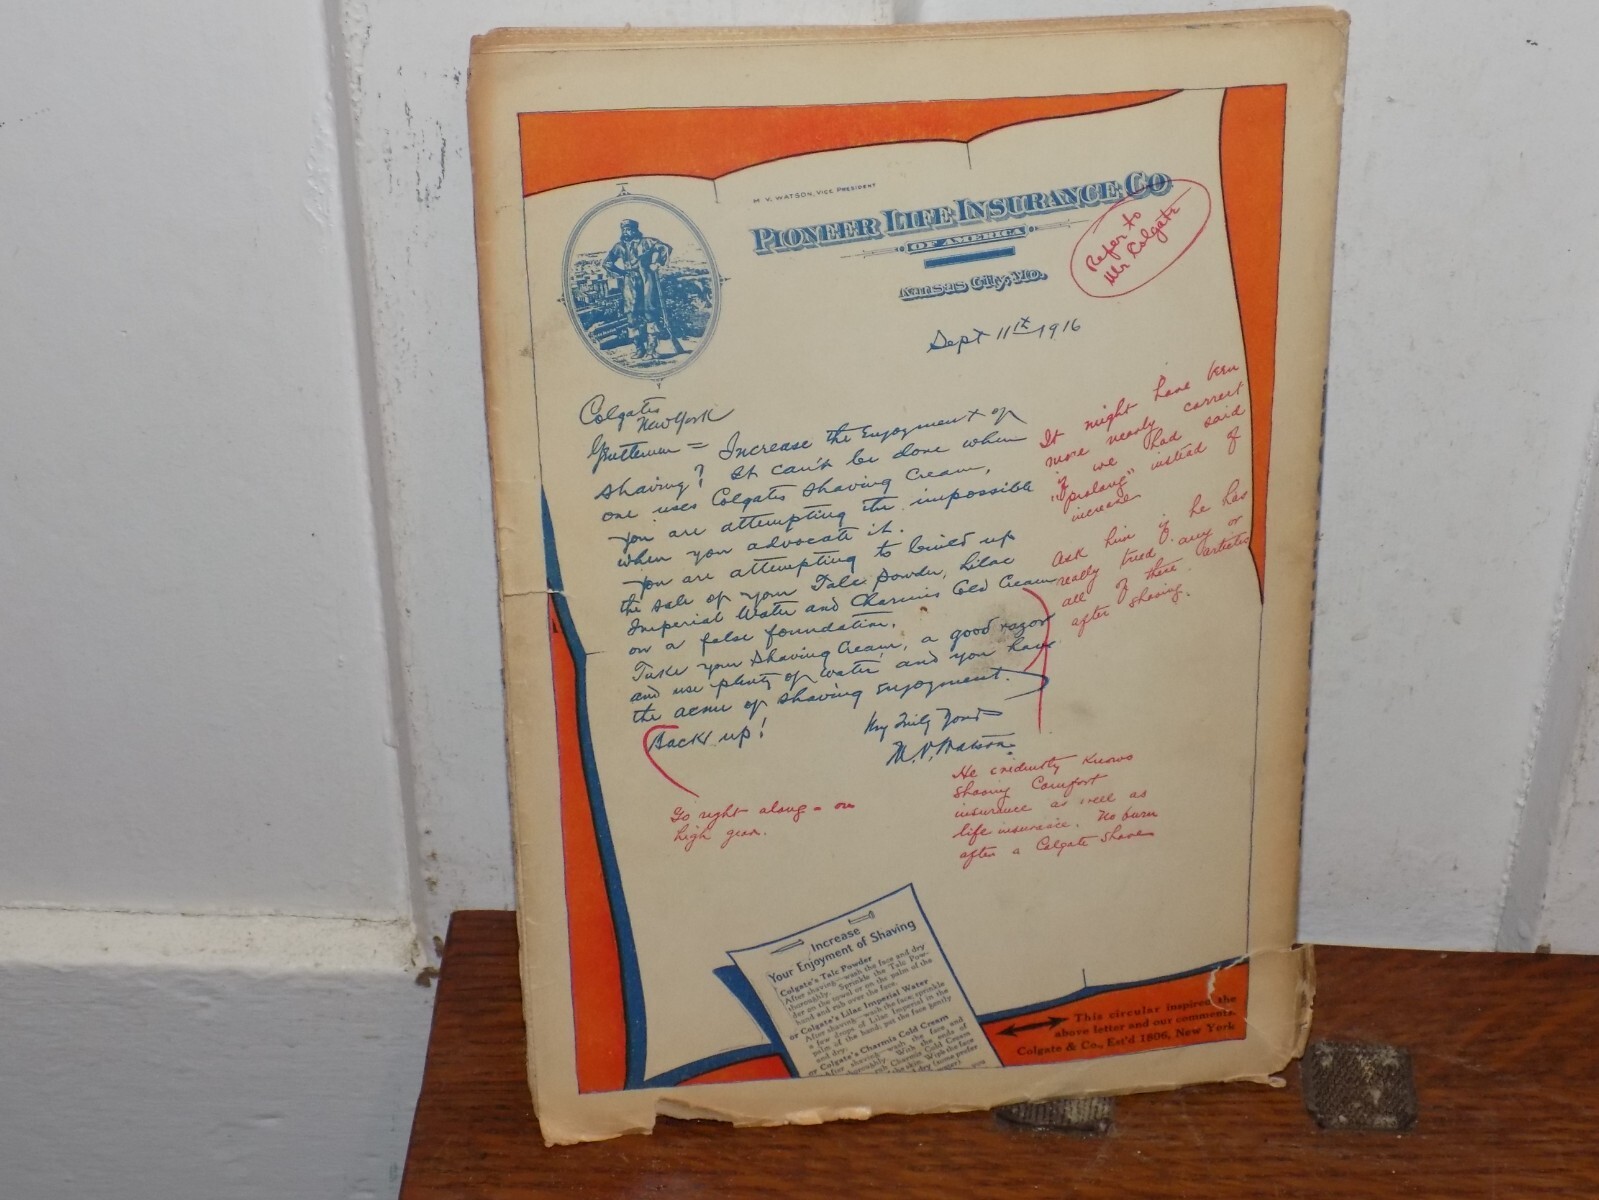 M. V. WATSON, VICE PRESIDENT
PIONEER LIFE INSURANCE CO
OF AMERICA
KANSAS CITY, MO.
Refer to
Mr Colgate
Sept 11th 1916
Colgates
New York
Gentlemen = Increase the Enjoyment of
shaving? It can't be done when
one uses Colgates Shaving Cream,
you are attempting the impossible
when you advocate it.
you are attempting to build up
the sale of your Talc Powder, Lilac
Imperial Water and Charmis Cold Cream
on a false foundation.
Take your Shaving Cream, a good razor
and use plenty of water and you have
the acme of shaving Enjoyment.
Back up!
Very Truly Yours
M. V. Watson.
It might have been
more nearly correct
if we had said
"prolong" instead of
increase
Ask him if he has
really tried any or
all of these articles
after shaving.
Go right along - on
high gear.
He evidently knows
Shaving Comfort
insurance as well as
life insurance. No burn
after a Colgate Shave
Increase
Your Enjoyment of Shaving
Colgate's Talc Powder
After shaving—wash the face and dry
thoroughly. Sprinkle the Talc Pow-
der on the towel or on the palm of the
hand and rub over the face.
or Colgate's Lilac Imperial Water
After shaving—wash the face, sprinkle
a few drops of Lilac Imperial in the
palm of the hand, pat the face gently
and dry.
or Colgate's Charmis Cold Cream
After shaving—wash the face and
thoroughly. With the ends of
rub Charmis Cold Cream
the skin. Wipe the face
dry (some prefer
water)
This circular inspired the
above letter and our comments.
Colgate & Co., Est'd 1806, New York